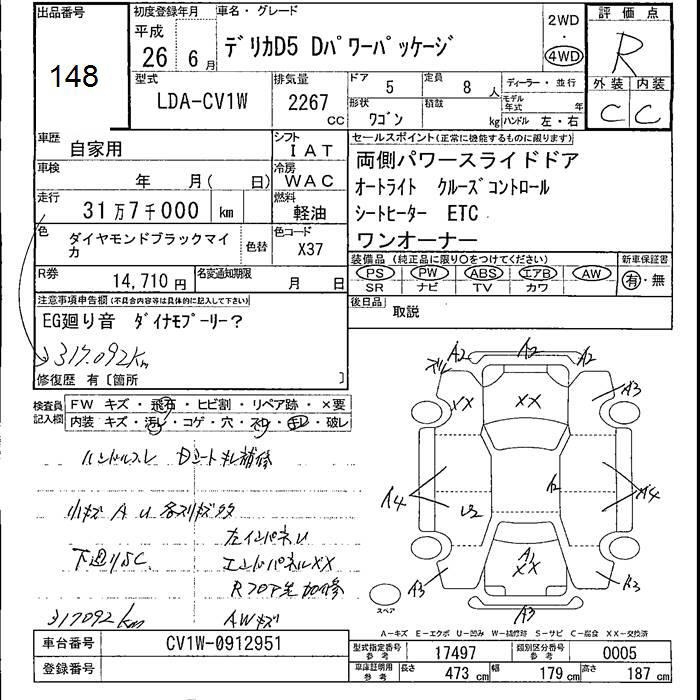 出品番号
148
初度登録年月
平成
26年 6月
車名・グレード
デリカD5 Dパワーパッケージ
2WD
・
4WD
評価点
R
外装 内装
C C
型式
LDA-CV1W
排気量
2267 CC
ドア 5
定員 8人
ディーラー・並行
形状 ワゴン
積載 kg
モデル年式 年
ハンドル 左・右
車歴 自家用
シフト IAT
車検 年 月( 日)
冷房 WAC
走行 31万7千000 km
燃料 軽油
色 ダイヤモンドブラックマイカ
色替
色コード X37
R券 14,710円
名変通知期限 月 日
セールスポイント(正常に機能するものに限ります)
両側パワースライドドア
オートライト クルーズコントロール
シートヒーター ETC
ワンオーナー
装備品(純正品に限り○をつけてください)
PS PW ABS エアB AW
SR ナビ TV カワ
新車保証書
有・無
後日品 取説
注意事項申告欄(不具合内容等は具体的に記入して下さい)
EG廻り音 ダイナモプーリー?
317.092km
修復歴 有〔箇所 〕
検査員記入欄
FW キズ・飛石・ヒビ割・リペア跡・×要
内装 キズ・汚レ・コゲ・穴・ネジ穴・キレ・破レ
ハンドルスレ Dシートキレ補修
小キズ A U 各スリキズ多
左インパネU
下廻りSC
エンドパネルXX
Rフロア先加修
317092km
AWキズ
A2 A2 A2
XX XX
A3
A4
A4
A1
XX
A3
A3
A3
スペア
A－キズ E－エクボ U－凹み W－補修跡 S－サビ C－腐食 XX－交換済
車台番号 CV1W-0912951
登録番号
型式指定番号 参考 17497
類別区分番号 参考 0005
車庫証明用 参考
長さ 473 cm
幅 179 cm
高さ 187 cm